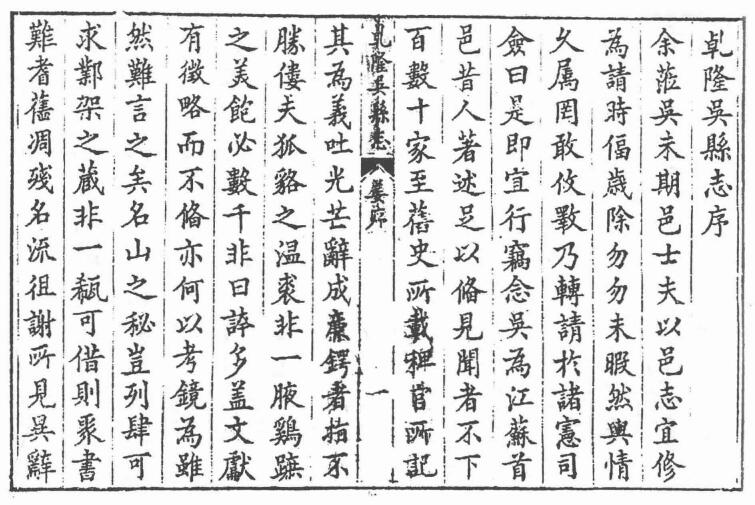 乹隆吳縣志序
余蒞吳未期邑士夫以邑志宜修
為請時偪歲除勿勿未暇然輿情
久属罔敢攸斁乃轉請於諸憲司
僉曰是即宜行竊念吳為江蘇首
邑昔人著述足以俻見聞者不下
百數十家至舊史所載稗官所記
乹隆吳縣志
姜序
一
其為義吐光芒辭成廉鍔者指不
勝僂夫狐貉之温裘非一腋鷄蹠
之美飽必數千非曰誇多盖文獻
有徵略而不俻亦何以考鏡為雖
然難言之矣名山之秘豈列肆可
求鄴架之蔵非一瓻可借則聚書
難者舊凋殘名流徂謝所見異辭